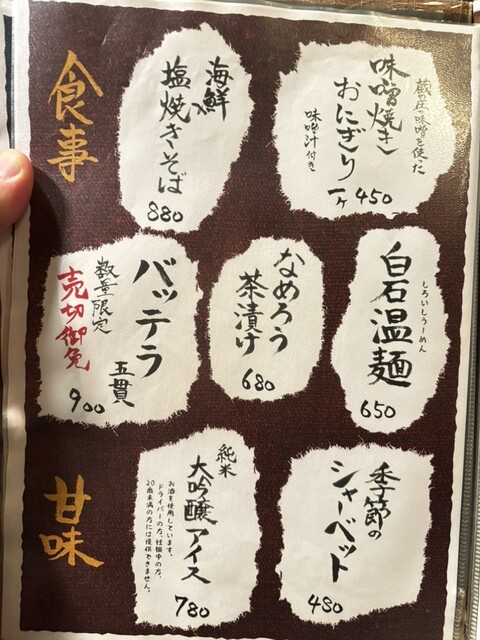 食事
蔵庄味噌を使った
味噌焼き
おにぎり
味噌汁付き
一ヶ450
海鮮
塩焼きそば
880
白石温麺
しろいしうーめん
650
なめろう
茶漬け
680
バッテラ
五貫
数量限定
売切御免
900
甘味
季節の
シャーベット
480
純米
大吟醸アイス
お酒を使用しています。
ドライバーの方、妊娠中の方、
20歳未満の方には提供できません。
780